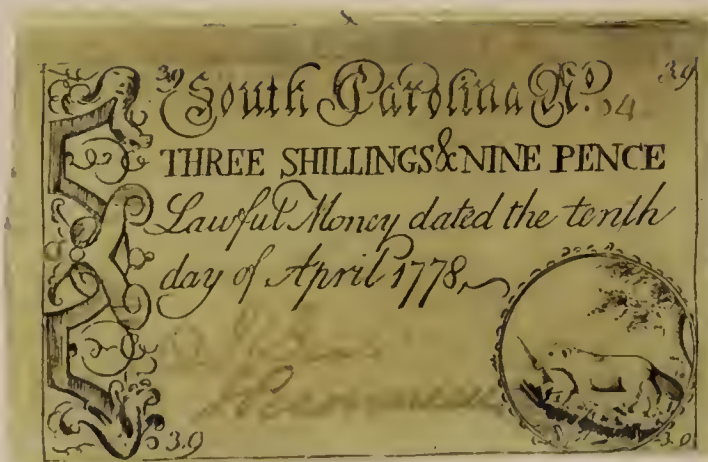 3.9 South Carolina No. 4 3.9
THREE SHILLINGS & NINE PENCE
Lawful Money dated the tenth
day of April 1778
3.9 3.9